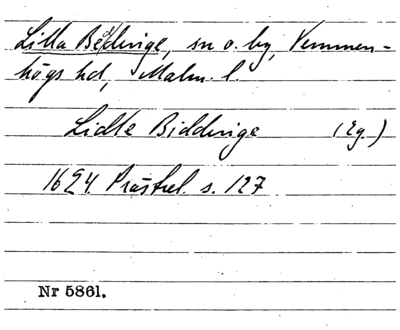 Lilla Beddinge, sn o. by, Vemmen-
högs hd, Malm. l.
Lidle Biddinge (Eg.)
1624 Prästrel. s. 127
Nr 5861.